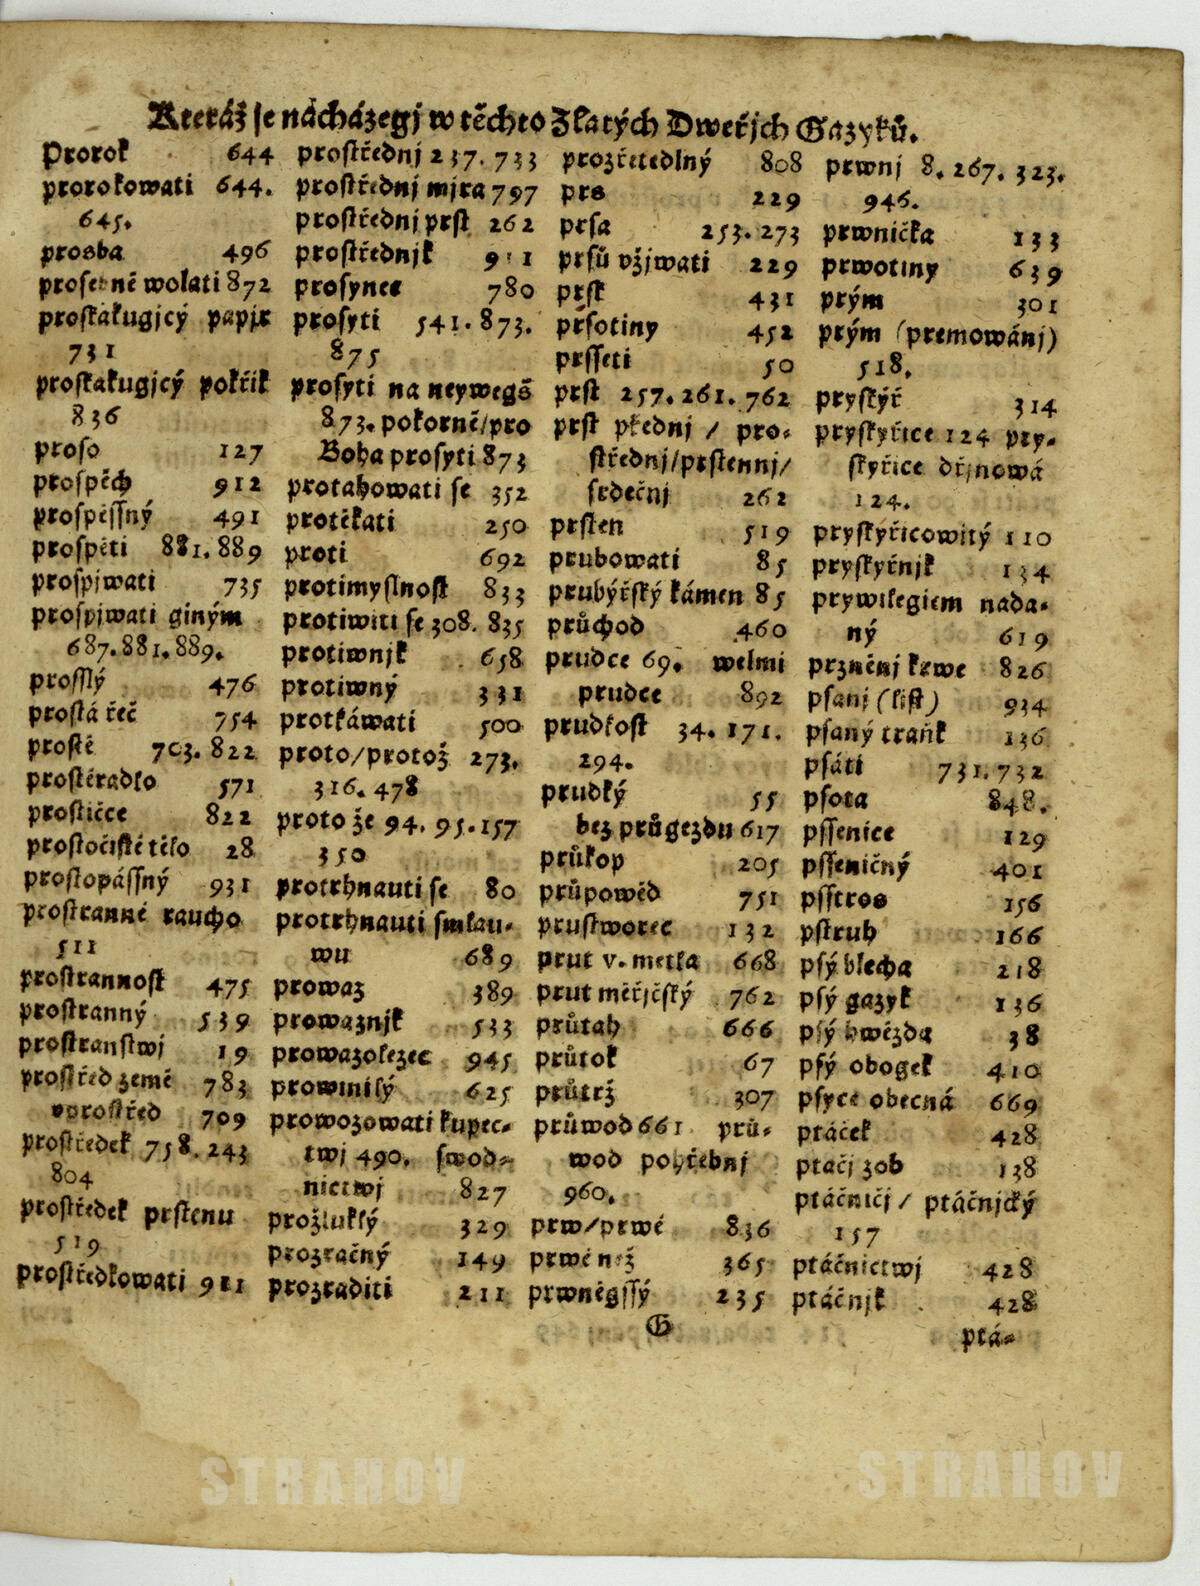 Kteráž se nácházegj w těchto Zlatých Dweřjch Gazyků.
Prorok 644
prorokowati 644.
645.
prosba 496
prosebně wolati 872
proskakugjcý papjr
731
proskakugjcý pokřik
836
proso 127
prospěch 912
prospěssný 491
prospěti 881. 889
prospjwati 735
prospjwati giným
687. 881. 889.
prosslý 476
prostá řeč 754
prostě 703. 822
prostěradlo 571
prostičce 822
prostočisté tělo 28
prostopássný 931
prostranné raucho
511
prostrannost 475
prostranný 539
prostranstwj 19
prostřed země 783
vprostřed 709
prostředek 758. 243
804
prostředek prstenu
519
prostředkowati 911
prostřednj 237. 733
prostřednj mjra 797
prostřednj prst 262
prostřednjk 911
prosynec 780
prosyti 541. 873.
875
prosyti na neywegš
873. pokorně/pro
Boha prosyti 873
protahowati se 352
protěkati 250
proti 692
protimyslnost 833
protiwiti se 308. 835
protiwnjk 658
protiwný 331
protkáwati 500
proto/protož 273.
316. 478
proto že 94. 95. 157
350
protrhnauti se 80
protrhnauti smlau-
wu 689
prowaz 389
prowaznjk 533
prowazolezec 945
prowinilý 625
prowozowati kupec-
twj 490. swod-
nictwj 827
prožluklý 329
prozračný 149
prozraditi 211
prozřetedlný 808
prs 229
prsa 253. 273
prsů vžjwati 229
prsk 431
prsotiny 452
prsseti 50
prst 257. 261. 762
prst přednj / pro-
střednj/prstennj/
srdečnj 262
prsten 519
prubowati 85
prubýřský kámen 85
průchod 460
prudce 69. welmi
prudce 892
prudkost 34. 171.
294.
prudký 55
bez průgezdu 617
průkop 205
průpowěd 751
prustworec 132
prut v. metla 668
prut měřjčský 762
průtah 666
průtok 67
průtrž 307
průwod 661 prů-
wod pohřebnj
960.
prw/prwé 836
prwé než 365
prwněgssý 235
prwnj 8. 267. 323.
946.
prwnička 133
prwotiny 639
prým 301
prým (premowánj)
518.
pryskýř 314
pryskyřice 124 pry-
skyřice dřjnowá
124.
pryskyřicowitý 110
pryskyřnjk 134
prywilegiem nada-
ný 619
przněnj krwe 826
psanj (list) 934
psaný traňk 136
psáti 731. 732
psota 848.
pssenice 129
psseničný 401
psstros 156
pstruh 166
psý blecha 218
psý gazyk 136
psý hwězda 38
psý obogek 410
psyce obecná 669
ptáček 428
ptačj zob 138
ptáčničj / ptáčnjcký
157
ptáčnictwj 428
ptáčnjk 428
G
ptá-
STRAHOV STRAHOV